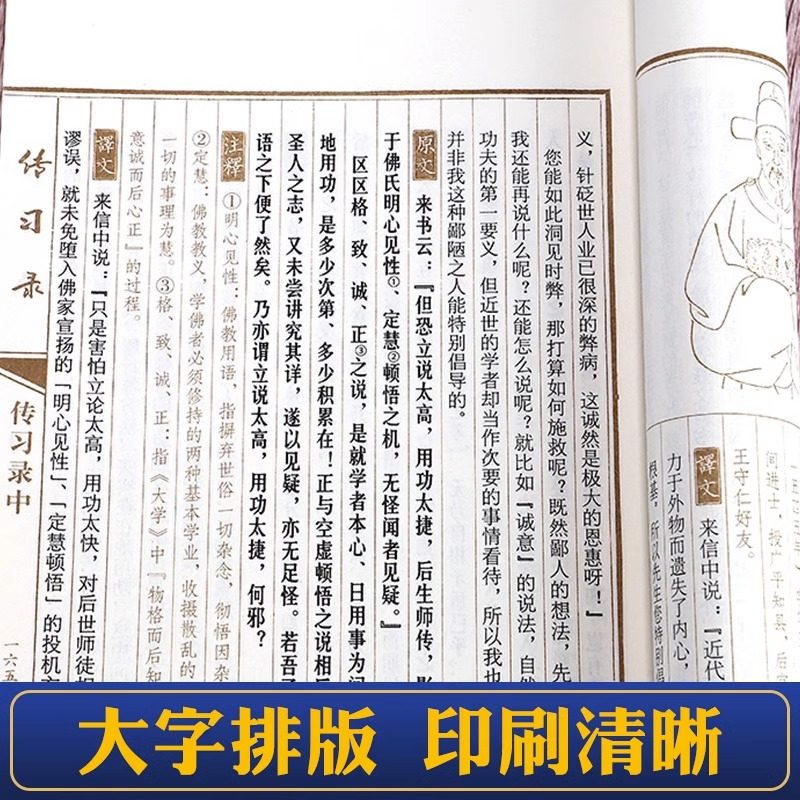 间进士，授广平知县，后
王守仁好友。
譯文 来信中说：『近代
力于外物而遗失了内心，
根基，所以先生您特别倡
义，针砭世人业已很深的弊病，这诚然是极大的恩惠呀！』
您能如此洞见时弊，那打算如何施救呢？既然鄙人的想法，先
我还能再说什么呢？还能怎么说呢？就比如『诚意』的说法，自
功夫的第一要义，但近世的学者却当作次要的事情看待，所以我也
并非我这种鄙陋之人能特别倡导的。
原文 来书云：『但恐立说太高，用功太捷，后生师传，影
于佛氏明心见性①、定慧②顿悟之机，无怪闻者见疑。』
区区格、致、诚、正③之说，是就学者本心、日用事为间
地用功，是多少次第、多少积累在！正与空虚顿悟之说相
圣人之志，又未尝讲究其详，遂以见疑，亦无足怪。若吾子
语之下便了然矣。乃亦谓立说太高，用功太捷，何邪？
注釋 ①明心见性：佛教用语，指摒弃世俗一切杂念，彻悟因杂
②定慧：佛教教义，学佛者必须修持的两种基本学业，收摄散乱的
一切的事理为慧。③格、致、诚、正：指《大学》中『物格而后知
意诚而后心正』的过程。
譯文 来信中说：『只是害怕立论太高，用功太快，对后世师徒相
谬误，就未免堕入佛家宣扬的『明心见性』、『定慧顿悟』的投机
传习录
传习录中
一六五
大字排版 印刷清晰